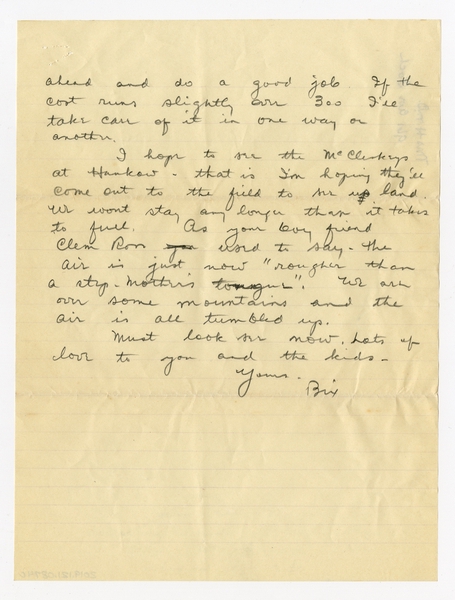 ahead and do a good job. If the
cost runs slightly over 300 I'll
take care of it in one way or
another.
I hope to see the McCleskeys
at Hankow - that is I'm hoping they'll
come out to the field to see us land.
We wont stay any longer than it takes
to fuel. As your boy friend
Clem Ross used to say - the
air is just now "rougher than
a step-mother's tongue". We are
over some mountains and the
air is all tumbled up.
Must look see now. Lots of
love to you and the kids -
Yours.
Bix